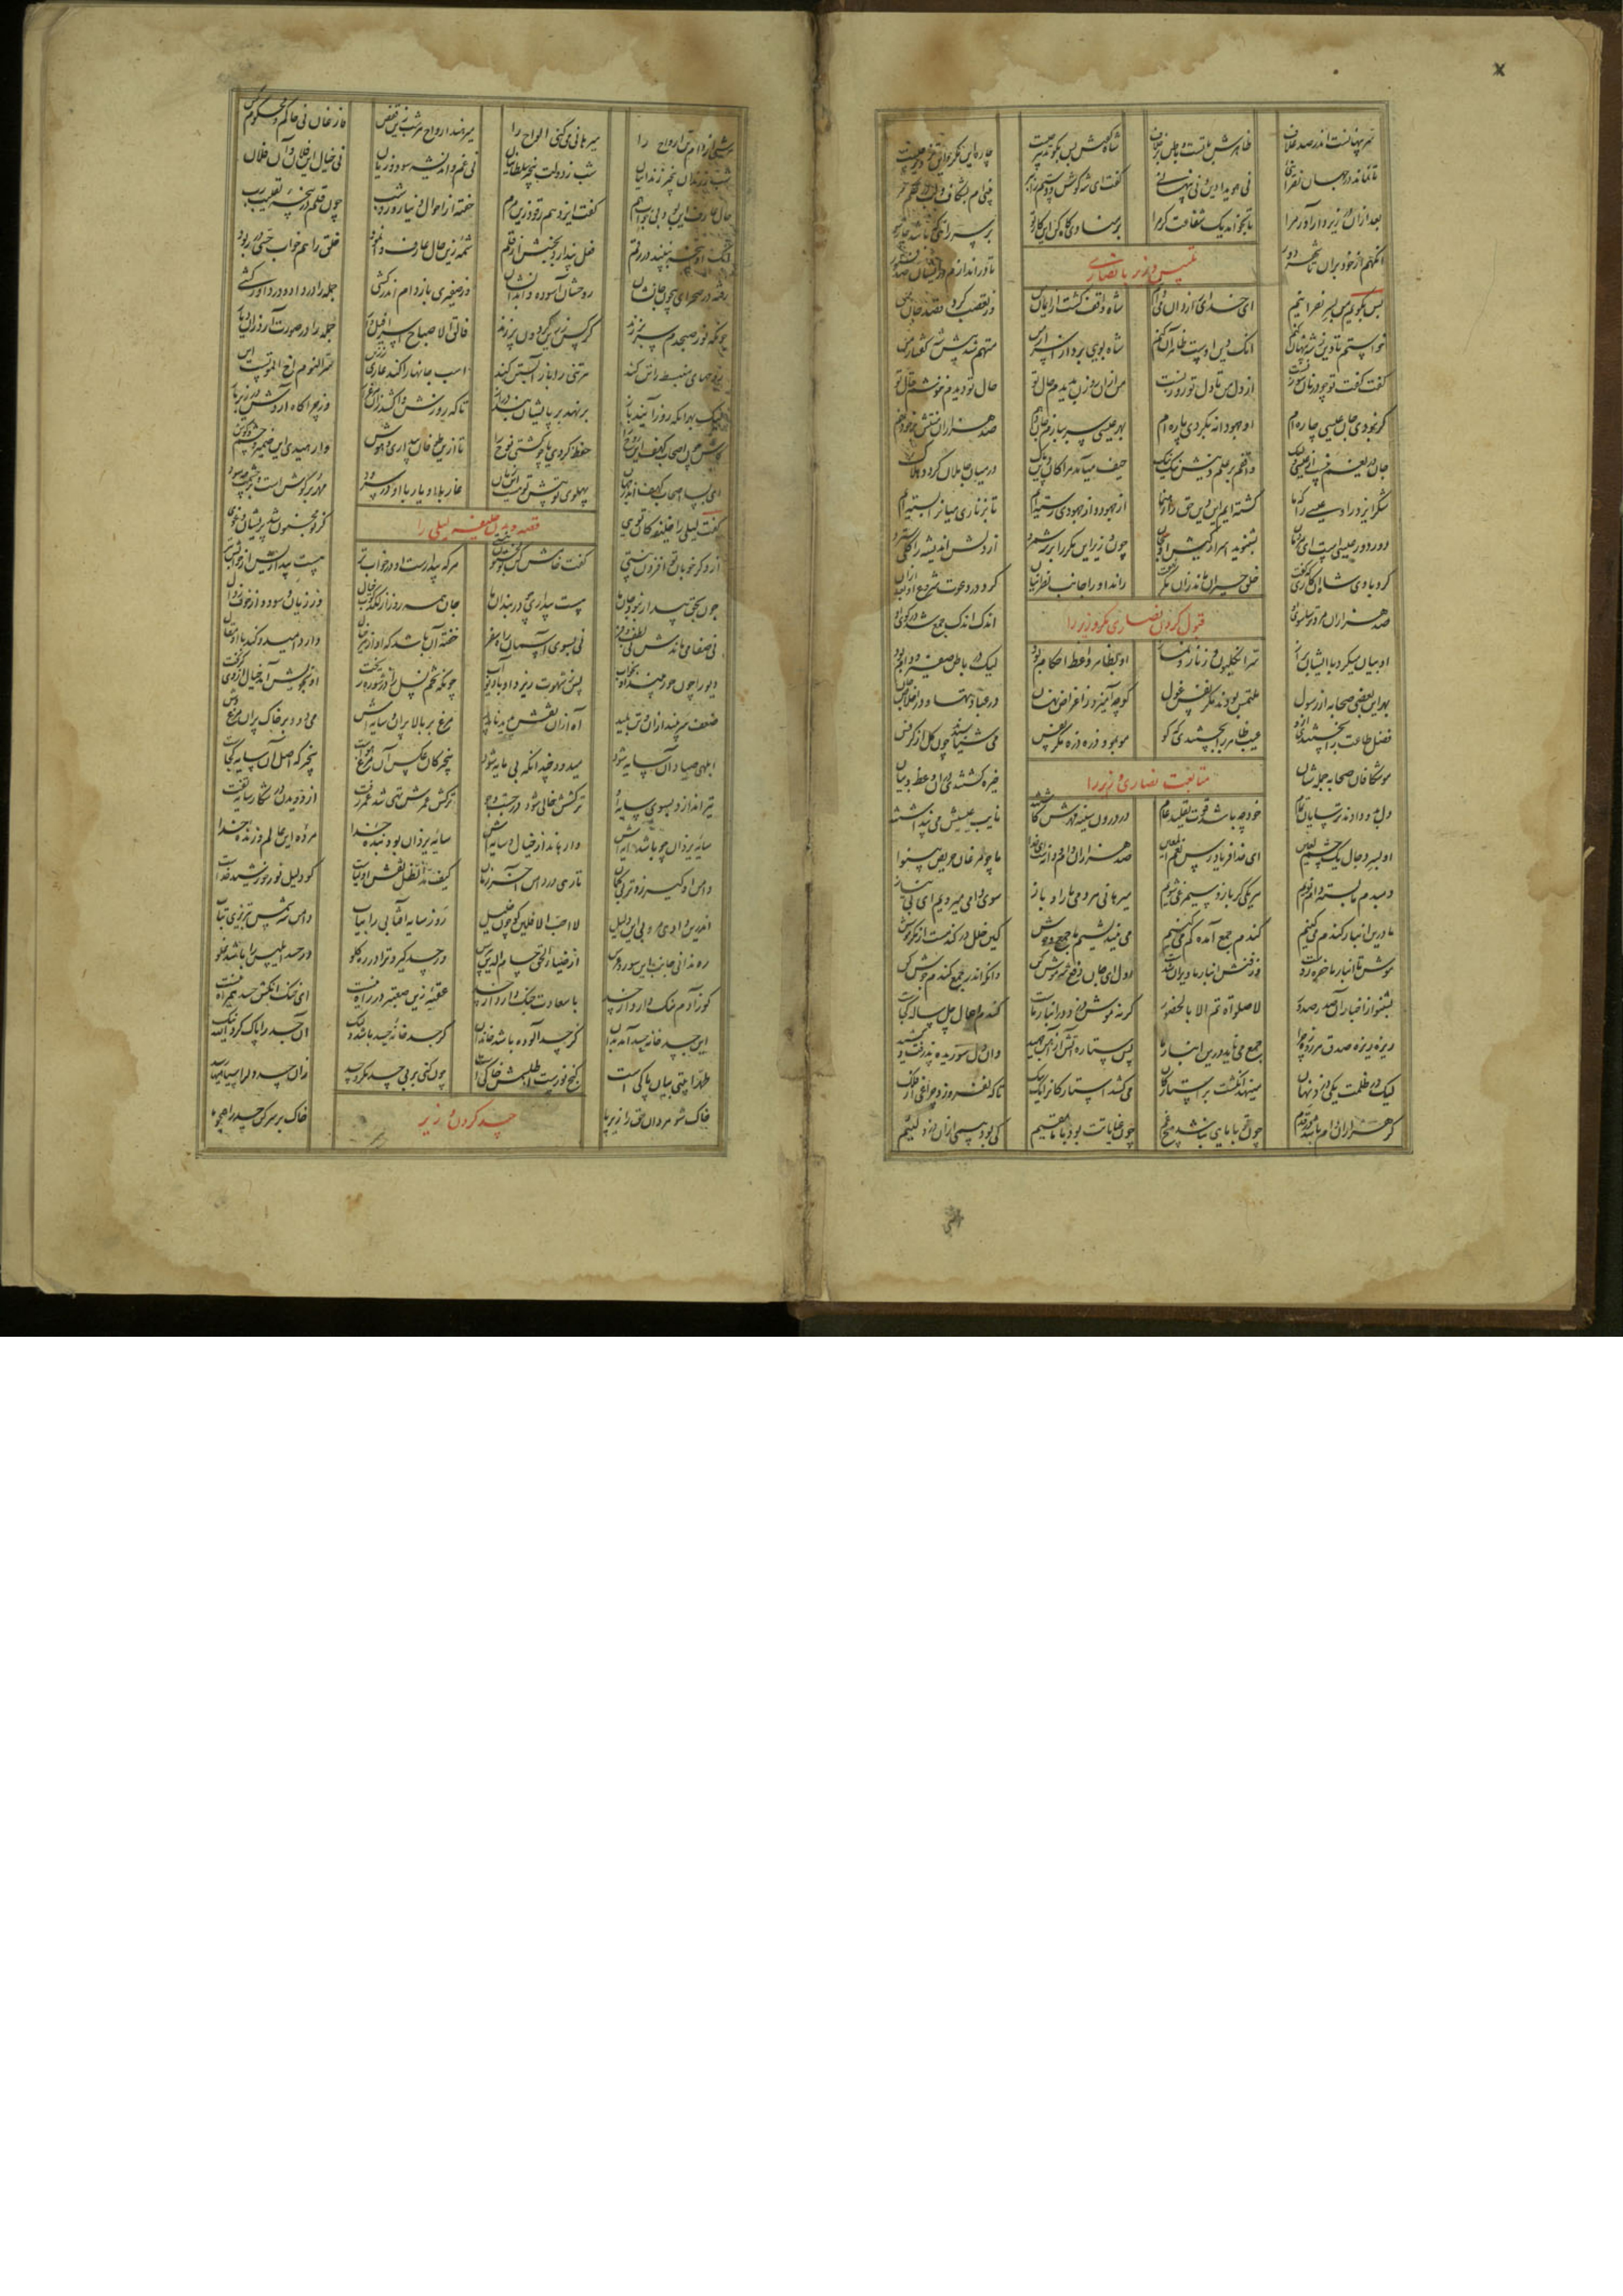 سر پنهانست اندر صد غلاف ظاهرش با تست و باطن بر خلاف شاه گفتش پس بگو تدبیر چیست چاره این مکر و این تزویر چیست
تا نماند در جهان نصرانئی نی هویدا دین و نی پنهانئی گفت ای شه گوش و دستم را ببر بینی ام بشکاف و لب در حکم مر
بعد ازان در زیر دار آور مرا تا بخواهد یک شفاعت گر مرا بر منادی گاه کن این کار تو بر سر راهی که باشد چارسو
آنگهم از خود بران تا شهر دور تا در اندازم در ایشان صد فتور
تلبیس وزیر با نصاری
پس بگویم من بسر نصرانیم ای خدای رازدان میدانیم شاه واقف گشت از ایمان من وز تعصب کرد قصد جان من
خواستم تا دین ز شه پنهان کنم آنک دین اوست ظاهر آن کنم شاه بویی برد از اسرار من متهم شد پیش شه گفتار من
گفت گفت تو چو در نان سوزنست از دل من تا دل تو روزنست من ازان روزن بدیدم حال تو حال تو دیدم ننوشم قال تو
گر نبودی جان عیسی چاره ام او جهودانه بکردی پاره ام بهر عیسی سر ببازم جان دهم صد هزاران منتش بر خود نهم
جان دریغم نیست از عیسی ولیک واقفم بر علم دینش نیک نیک حیف میآید مرا کان دین پاک در میان جاهلان گردد هلاک
شکر ایزد را و عیسی را که ما گشته ایم این دین حق را رهنما از جهود و از جهودی رسته ایم تا بزناری میان را بسته ایم
دور دور عیسی است ای مردمان بشنوید اسرار کیش او بجان چون وزیر این مکر را بر شه شمرد از دلش اندیشه را کلی ببرد
کرد با وی شاه آن کاری که گفت خلق حیران مانده زان مکر نهفت راند او را جانب نصرانیان کرد در دعوت شروع او بعد ازان
صد هزاران مرد ترسا سوی او اندک اندک جمع شد در کوی او
قبول کردن نصاری مکر وزیر را
او بیان میکرد با ایشان براز سر انگلیون و زنار و نماز او بظاهر واعظ احکام بود لیک در باطن صفیر و دام بود
بهر این بعضی صحابه از رسول ملتمس بودند مکر نفس غول کو چه آمیزد ز اغراض نهان در عبادتها و در اخلاص جان
فضل طاعت را نجستندی ازو عیب ظاهر را بجستندی که کو مو بمو و ذره ذره مکر نفس می شناسیدند چون گل از کرفس
موشکافان صحابه جمله شان خیره گشتندی در آن وعظ و بیان
متابعت نصاری وزیر را
دل بدو دادند ترسایان تمام خود چه باشد قوت تقلید عام در درون سینه مهرش کاشتند نایب عیسیش می پنداشتند
او بسر دجال یک چشم لعین ای خدا فریاد رس نعم المعین صد هزاران دام و دانه است ای خدا ما چو مرغان حریص بینوا
دمبدم ما بسته دام نویم هر یکی گر باز و سیمرغی شویم میرهانی هر دمی ما را و باز سوی دامی میرویم ای بی نیاز
ما درین انبار گندم می کنیم گندم جمع آمده گم می کنیم می نیندیشیم ما جمع و هوش کین خلل در گندمست از مکر موش
موش تا انبار ما حفره زدست وز فنش انبار ما ویران شدست اول ای جان دفع شر موش کن وانگه اندر جمع گندم جوش کن
بشنو از اخبار آن صدر صدور لا صلوة تم الا بالحضور گر نه موش دزد در انبار ماست گندم اعمال چل ساله کجاست
ریزه ریزه صدق هر روزه چرا جمع می ناید درین انبار ما بس ستاره آتش از آهن جهید وان دل سوزیده پذرفت و کشید
لیک در ظلمت یکی دزد نهان مینهد انگشت بر استارگان می کشد استارگان را یک بیک تا که نفروزد چراغی از فلک
گر هزاران دام باشد هر قدم چون تو با مایی نباشد هیچ غم چون عنایاتت بود با ما مقیم کی بود بیمی ازان دزد لئیم
هر شبی از دام تن ارواح را میرهانی می کنی الواح را میرهند ارواح هر شب زین قفس فارغان نی حاکم و محکوم کس
شب ز زندان بی خبر زندانیان شب ز دولت بی خبر سلطانیان نی غم و اندیشه سود و زیان نی خیال این فلان و آن فلان
حال عارف این بود بی خواب هم گفت ایزد هم رقود زین مرم خفته از احوال دنیا روز و شب چون قلم در پنجه تقلیب رب
آنک او پنجه نبیند در رقم فعل پندارد بجنبش از قلم شمه زین حال عارف وانمود خلق را هم خواب حسی در ربود
رفته در صحرای بیچون جانشان روحشان آسوده و ابدانشان وز صفیری باز دام اندر کشی جمله را در داد و در داور کشی
چونکه نور صبحدم سر بر زند کرکس زرین گردون پر زند فالق الاصباح اسرافیل وار جمله را در صورت آرد زان دیار
روحهای منبسط را تن کند هر تنی را باز آبستن کند اسب جانها را کند عاری ز زین سر النوم اخ الموتست این
لیک بهر آنکه روز آیند باز بر نهد بر پایشان بند دراز تا که روزش واکشد زان مرغزار وز چراگاه آردش در زیر بار
کاش چون اصحاب کهف این روح را حفظ کردی یا چو کشتی نوح را تا ازین طوفان بیداری و هوش وا رهیدی این ضمیر و چشم و گوش
ای بسا اصحاب کهف اندر جهان پهلوی تو پیش تو هست این زمان غار با او یار با او در سرود مهر بر گوش است و بر چشمت چه سود
گفت لیلی را خلیفه کان تویی کز تو مجنون شد پریشان و غوی
قصه دیدن خلیفه لیلی را
از دگر خوبان تو افزون نیستی گفت خامش چون تو مجنون نیستی هر که بیدارست او در خواب تر هست بیداریش از خوابش بتر
چون بحق بیدار نبود جان ما هست بیداری چو در بندان ما جان همه روز از لگدکوب خیال وز زیان و سود و از خوف زوال
نی صفا می ماندش نی لطف و فر نی بسوی آسمان راه سفر خفته آن باشد که او از هر خیال دارد امید و کند با او مقال
دیو را چون حور بیند او بخواب پس ز شهوت ریزد او با دیو آب چونکه تخم نسل را در شوره ریخت او بخویش آمد خیال از وی گریخت
ضعف سر بیند ازان و تن پلید آه ازان نقش پدید ناپدید مرغ بر بالا پران و سایه اش می دود بر خاک پران مرغ وش
ابلهی صیاد آن سایه شود میدود چندانکه بی مایه شود بیخبر کان عکس آن مرغ هواست بیخبر که اصل آن سایه کجاست
تیر اندازد بسوی سایه او ترکشش خالی شود در جست و جو ترکش عمرش تهی شد عمر رفت از دویدن در شکار سایه تفت
سایه یزدان چو باشد دایه اش وا رهاند از خیال و سایه اش سایه یزدان بود بنده خدا مرده این عالم و زنده خدا
دامن او گیر زوتر بی گمان تا رهی در دامن آخر زمان کیف مد الظل نقش اولیاست کو دلیل نور خورشید خداست
اندرین وادی مرو بی این دلیل لا احب الآفلین گو چون خلیل رو ز سایه آفتابی را بیاب دامن شه شمس تبریزی بتاب
ره ندانی جانب این سور و عرس از ضیاء الحق حسام الدین بپرس ور حسد گیرد ترا در ره گلو در حسد ابلیس را باشد غلو
کو ز آدم ننگ دارد از حسد با سعادت جنگ دارد از حسد عقبه زین صعبتر در راه نیست ای خنک آنکش حسد همراه نیست
این جسد خانه حسد آمد بدان گر حسد آلوده باشد خاندان گر جسد خانه حسد باشد ولیک آن جسد را پاک کرد الله نیک
طهرا بیتی بیان پاکی است گنج نورست ار طلسمش خاکی است چون کنی بر بی حسد مکر و حسد زان حسد دل را سیاهیها رسد
خاک شو مردان حق را زیر پا خاک بر سر کن حسد را همچو ما
حسد کردن وزیر